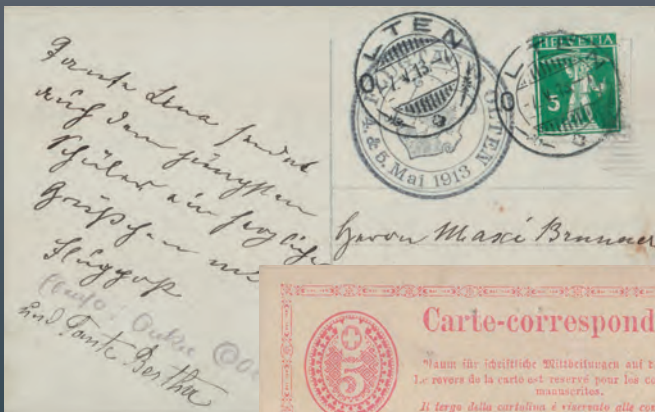 Tante Lena sendet
auch dem jüngsten
Schüler ein herzliches
Grüßchen
Flugpost
und Tante Berthe
OLTEN
OLTEN
& 5. Mai 1913
OLTEN
HELVETIA
5
Herrn Maxi Brunner
Carte-correspond
5
Raum für schriftliche Mittheilungen auf
Le revers de la carte est réservé pour les co
manuscrites.
Il tergo della cartolina è riservato alle com